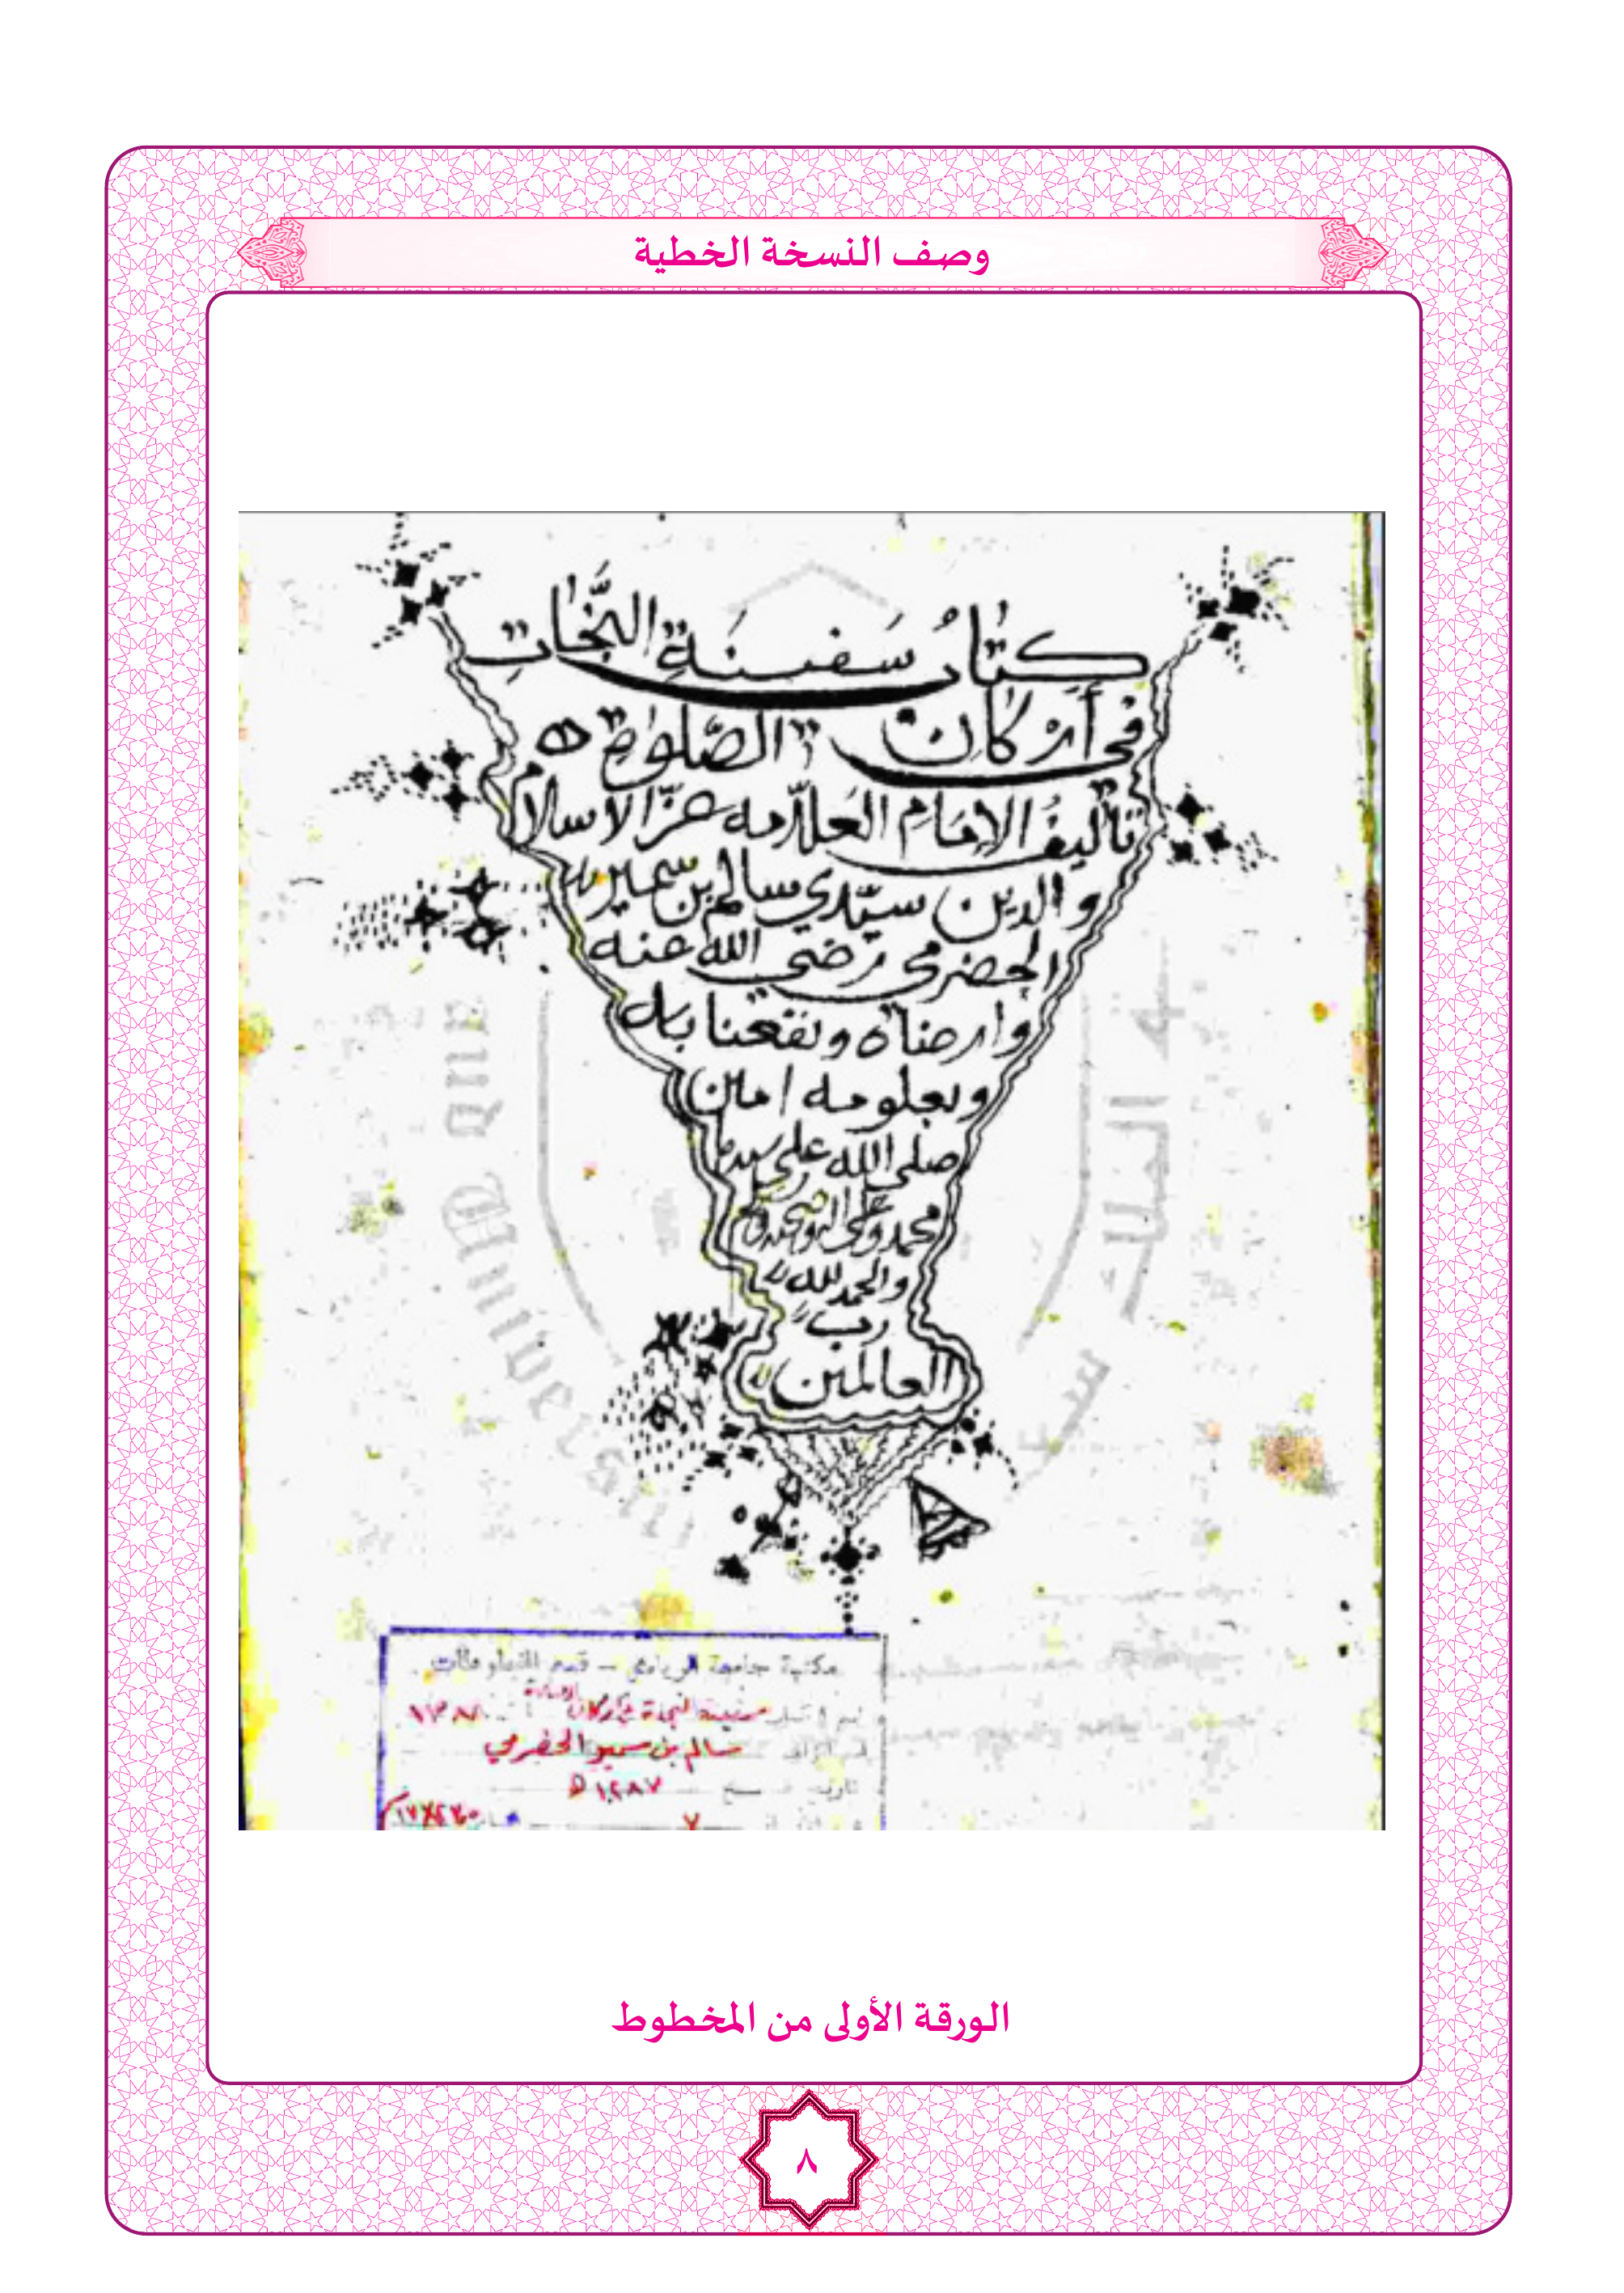 وصف النسخة الخطية
كتابُ سَفينَةِ النَّجاتِ
في أركان الصّلوٰة
تأليفُ الإمَامِ العَلّامه عزّ الاسلام
والدين سيّدي سالم بن سمير
الحضرمي رضي الله عنه
وارضاه ونفعنا به
وبعلومه امين
صلى الله على سيدنا
محمد وعلى اله وصحبه
والحمد لله
رب
العالمين
مكتبة جامعة الرياض – قسم المخطوطات
سفينة النجاة
سالم بن سمير الحضرمي
١٢٨٧ ه
٧
Univers
الورقة الأولى من المخطوط
٨